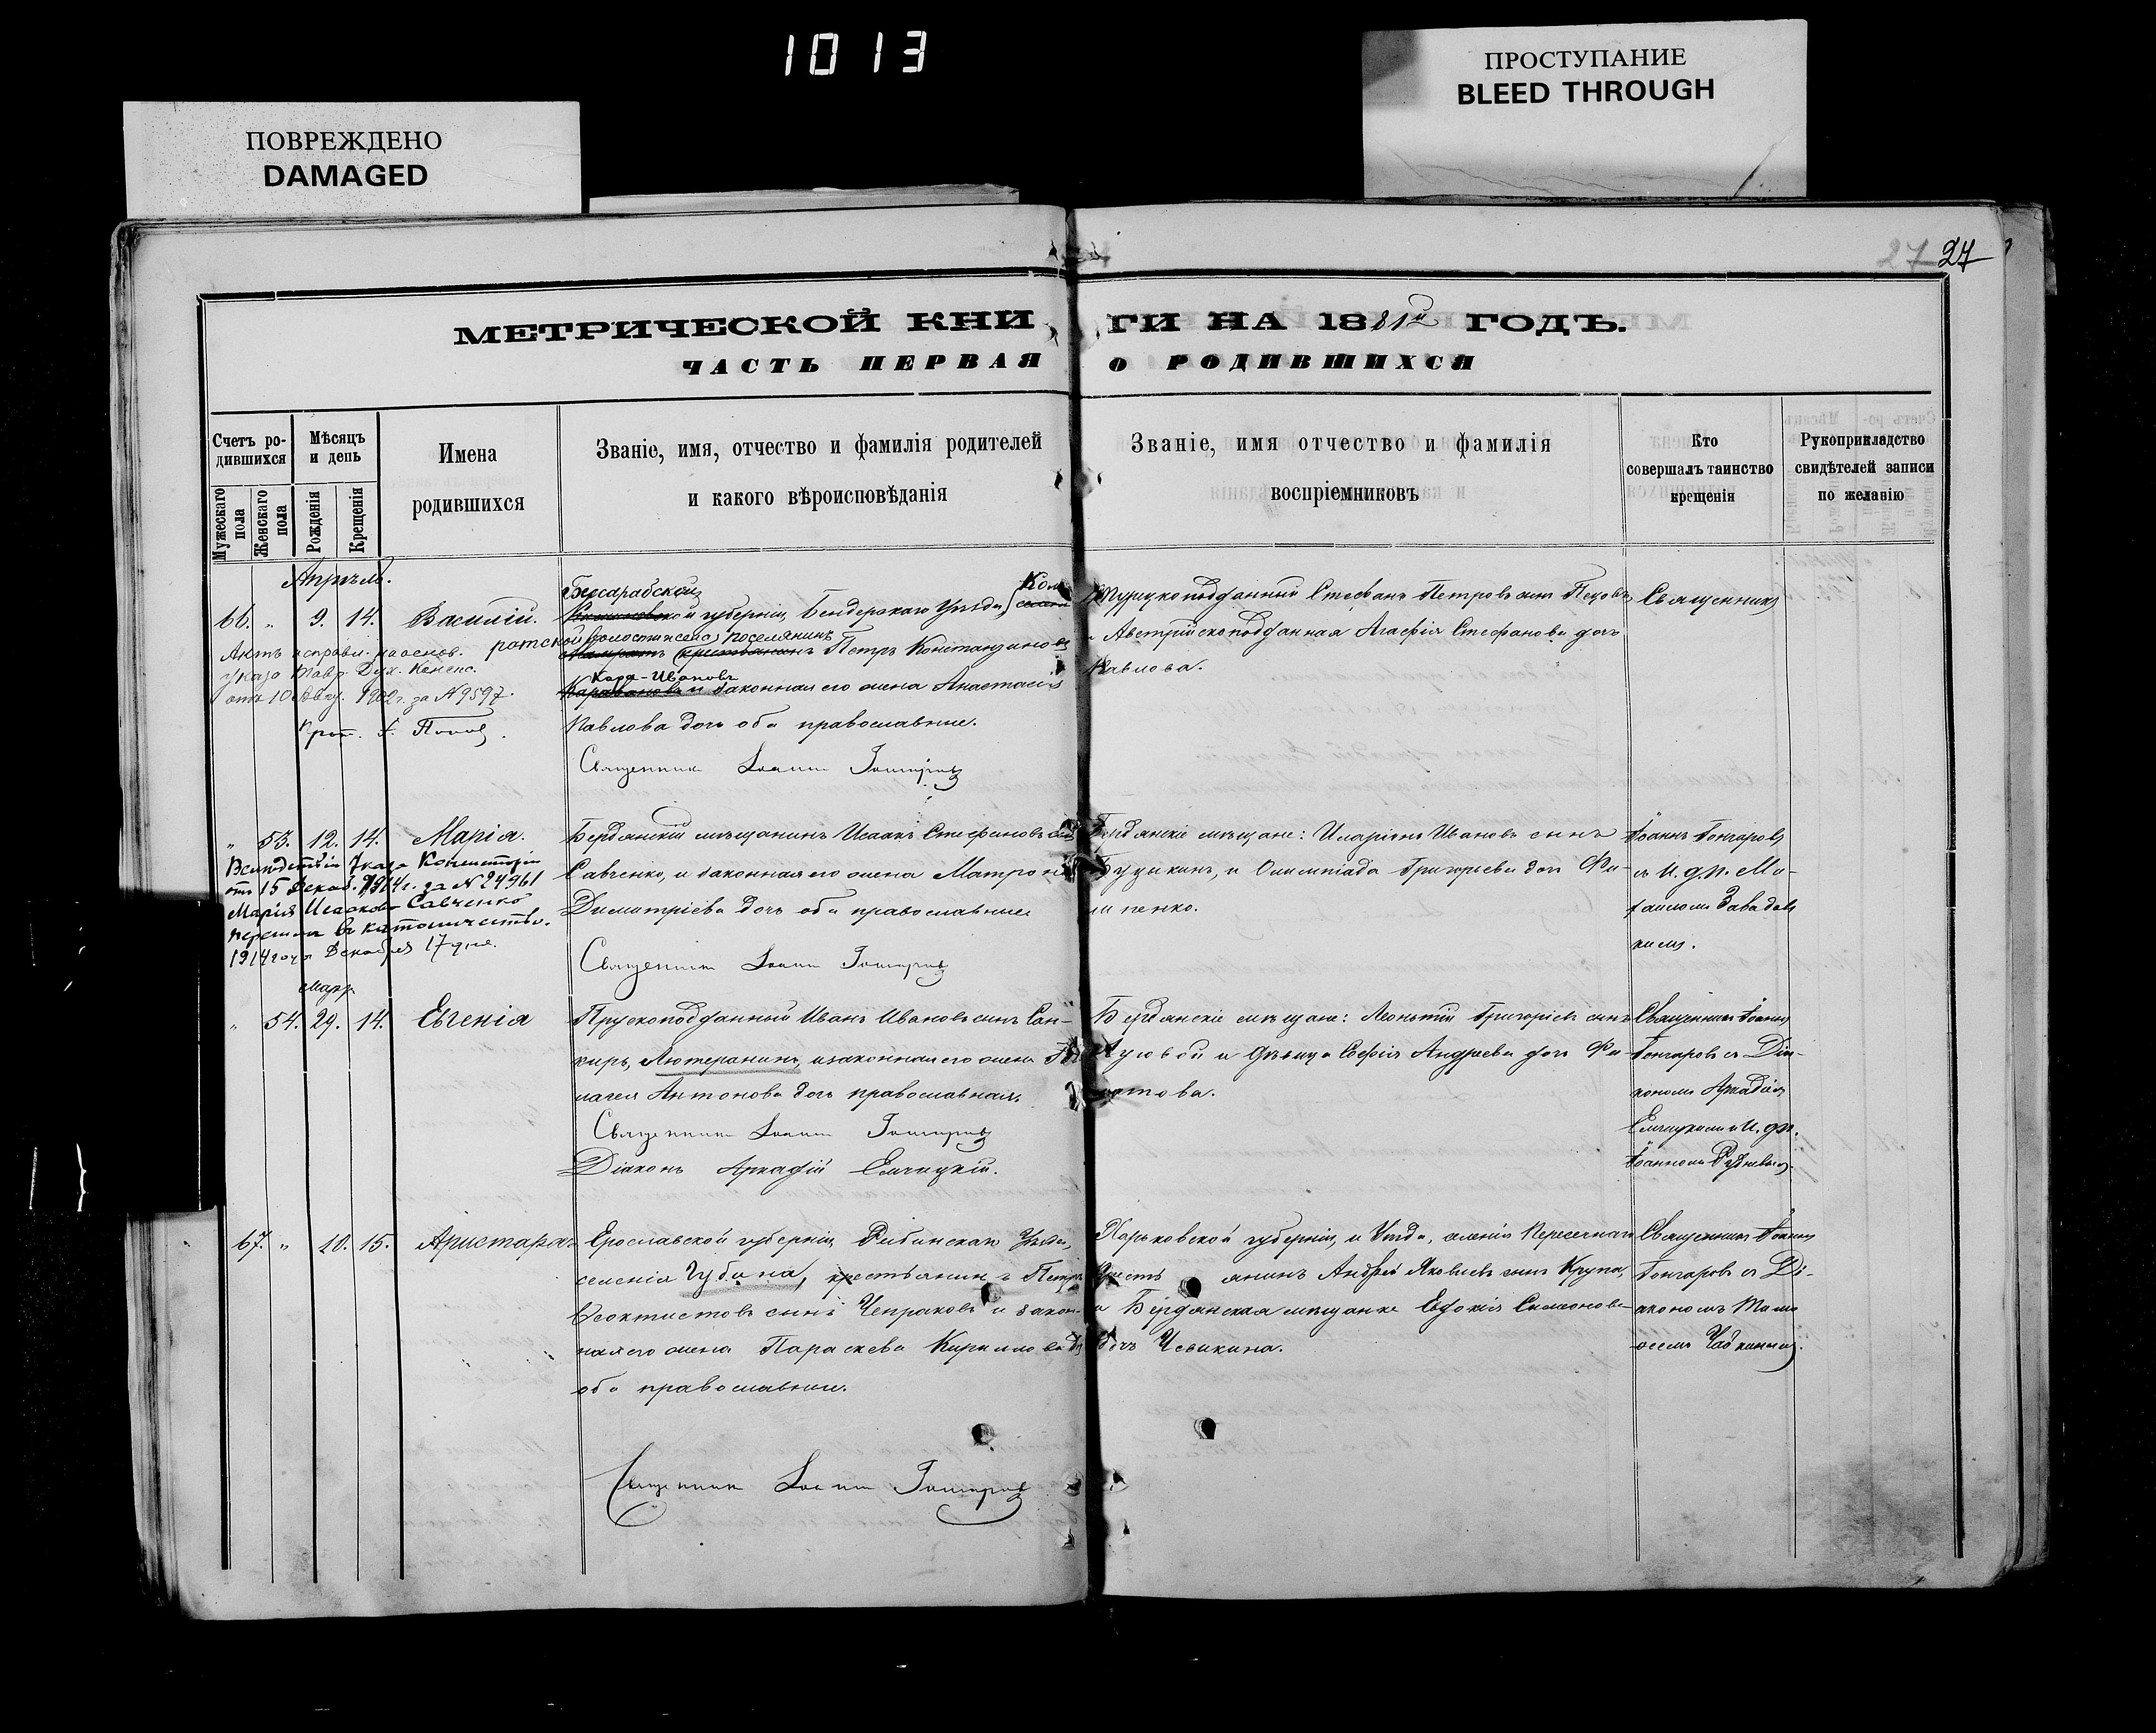 1013
ПОВРЕЖДЕНО
DAMAGED
ПРОСТУПАНИЕ
BLEED THROUGH
27 27
МЕТРИЧЕСКОЙ КНИ ГИ НА 1881й ГОДЪ.
ЧАСТЬ ПЕРВАЯ О РОДИВШИХСЯ
Счетъ ро-
дившихся
Мужескаго пола
Женскаго пола
Мѣсяцъ
и день
Рожденія
Крещенія
Имена
родившихся
Званіе, имя, отчество и фамилія родителей
и какого вѣроисповѣданія
Званіе, имя отчество и фамилія
воспріемниковъ
Кто
совершалъ таинство
крещенія
Рукоприкладство
свидѣтелей записи
по желанію
Апрѣль.
66. " 9. 14. Василій.
Актъ исправл. на основ.
указа Тавр. Дух. Конс.
отъ 10 1902 г. за № 9597.
Прот. Поповъ.
Бессарабской
губерніи, Бендерскаго Уѣзда, Ком
ратской волости села поселянинъ
Петръ Константиновъ
Кара-Ивановъ
и законная его жена Анастасія
Павлова дочь оба православные.
Священникъ Іоаннъ Гончаровъ
Турецкоподданный Стефанъ Петровъ сынъ
и Австрійскоподданная Агафія Стефанова дочь
Павлова.
Священникъ
" 53. 12. 14. Марія.
Вслѣдствіе Указа Консисторіи
отъ 15 Декаб. 1914 г. за № 24961
Марія Исаакова Савченко
перешла въ католичество.
1914 года Декабря 17 дня.
Бердянскій мѣщанинъ Исаакъ Стефановъ сынъ
Савченко, и законная его жена Матрона
Димитріева дочь оба православные
Священникъ Іоаннъ Гончаровъ
Бердянскіе мѣщане: Иларіонъ Ивановъ сынъ
и Олимпіада Григорьева дочь Фи-
липенко.
Іоаннъ Гончаровъ
съ и. д. п. Ми-
хаиломъ Завадов
кимъ.
Март.
" 54. 29. 14. Евгенія
Прускоподданный Иванъ Ивановъ сынъ
Лютеранинъ, и законная его жена
лагея Антонова дочь православная.
Священникъ Іоаннъ Гончаровъ
Діаконъ Аркадій Елчицкій.
Бердянскіе мѣщане: Леонтій Григорьевъ сынъ
и дѣвица Софія Андреева дочь
Священникъ Іоаннъ
Гончаровъ съ Діа-
кономъ Аркадіемъ
Елчицкимъ и И. д. п.
Іоанномъ Рудневымъ.
67. " 10. 15. Аристархъ
Ерославской губерніи, Рибинскаго Уѣзда,
селенія Губина, крестьянинъ Петръ
Ѳеоктистовъ сынъ Чепраковъ и закон-
ная его жена Параскева Кириллова
оба православные.
Священникъ Іоаннъ Гончаровъ
Харьковской губерніи, и Уѣзда, селенія Пересечная
крестьянинъ Андрей Яковлевъ сынъ Крупа,
и Бердянская мѣщанка Евфокія Симеонова
дочь Чевикина.
Священникъ Іоаннъ
Гончаровъ съ Ді-
акономъ